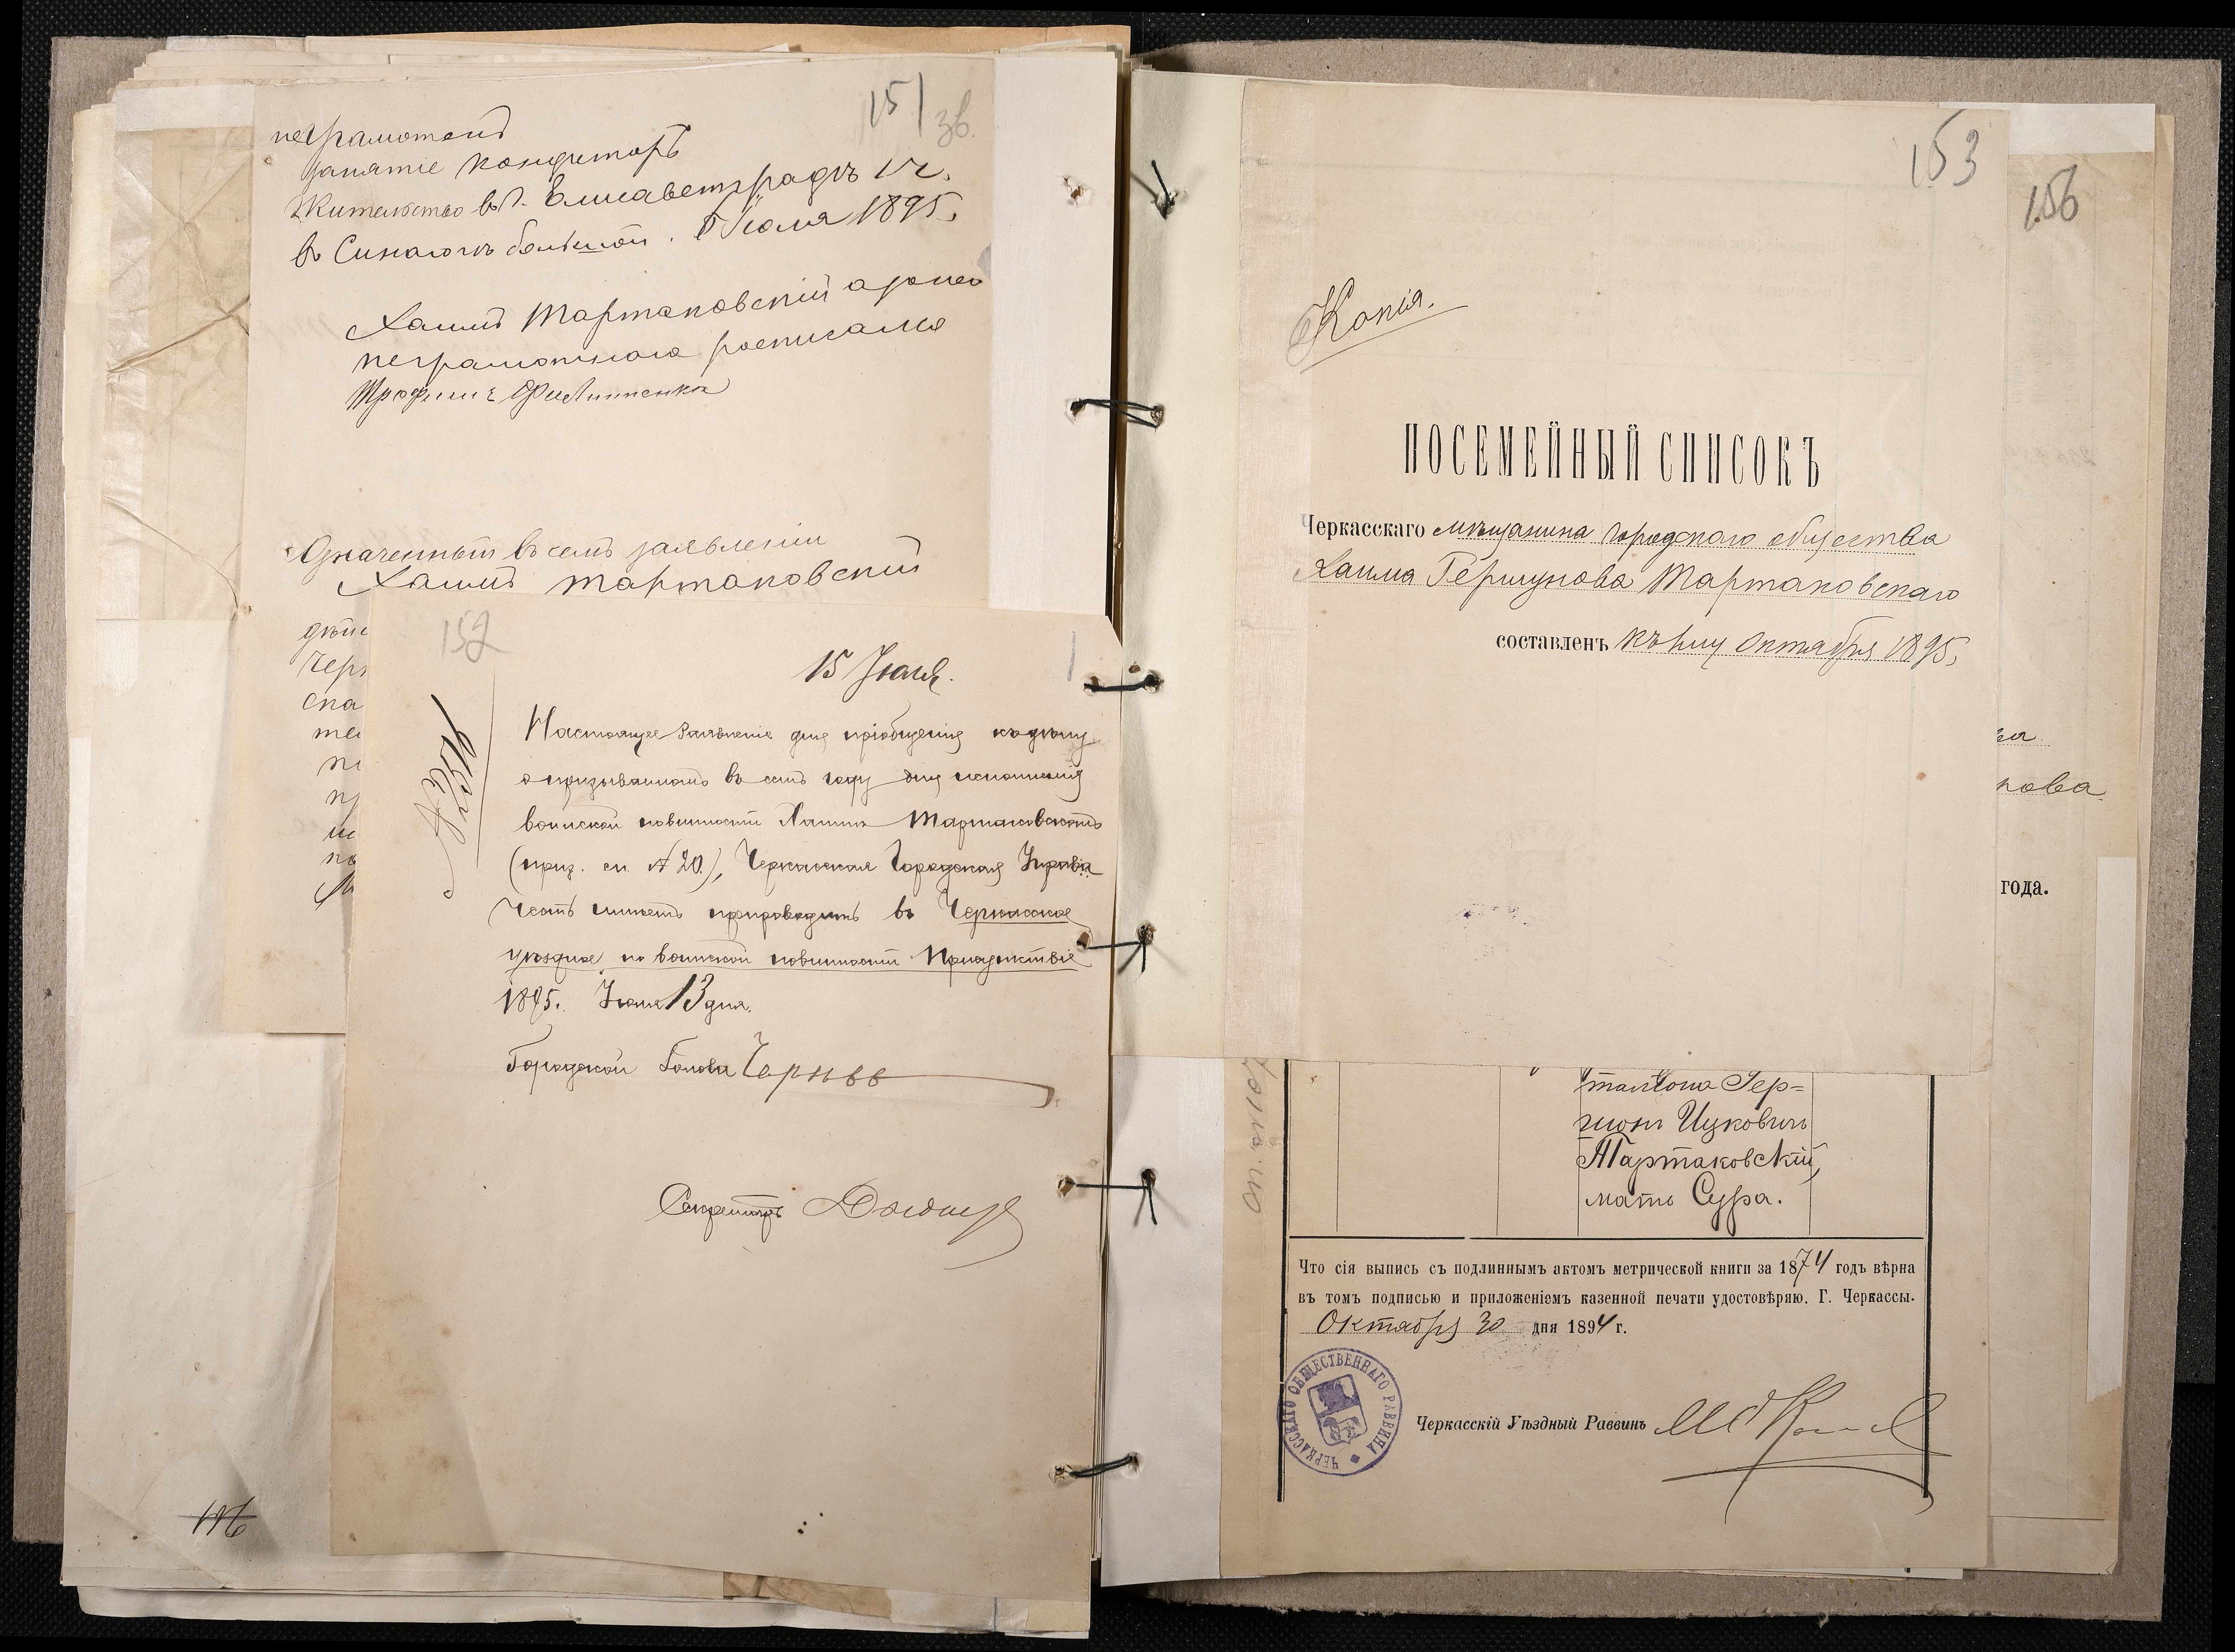 151
зв.
неграмотенъ
занятіе кондиторъ
Жительство въ г. Елисаветградъ
въ Синагогъ большой. Іюля 1895.
Хаимъ Тартаковскій а за него
неграмотнаго росписался
Трофимъ Филипенко
Означенный въ семъ заявленіи
Хаимъ Тартаковскій
152
15 Іюля.
Настоящее заявленіе для пріобщенія къ дѣлу
о призываемомъ въ семъ году для исполненія
воинской повинности Хаимъ Тартаковскомъ
(приз. сп. № 20), Черкасская Городская Управа
честь имѣетъ препроводить въ Черкасское
уѣздное по воинской повинности Присутствіе
1895. Іюля 13 дня.
Городской Голова
Секретарь
116
153
156
Копія.
ПОСЕМЕЙНЫЙ СПИСОКЪ
Черкасскаго мѣщанина городского общества
Хаима Гершунова Тартаковскаго
составленъ къ Октября 1895.
ва
нова.
года.
Гер=
шонъ Ицковичъ
Тартаковскій,
мать Сура.
Что сія выпись съ подлиннымъ актомъ метрической книги за 1874 годъ вѣрна
въ томъ подписью и приложеніемъ казенной печати удостовѣряю. Г. Черкассы.
Октября 30 дня 1894 г.
ЧЕРКАССКАГО ОБЩЕСТВЕННАГО РАВВИНА
Черкасскій Уѣздный Раввинъ